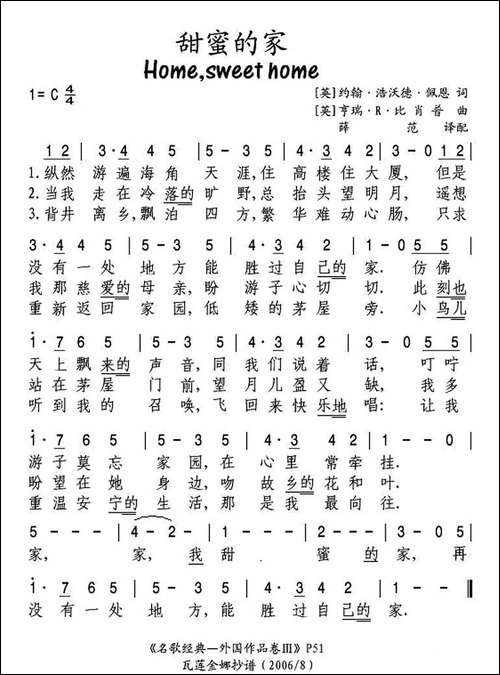 甜蜜的家
Home,sweet home
1=C 4/4
[英]约翰·浩沃德·佩恩 词
[英]亨瑞·R·比肖普 曲
薛 范 译配
1 2 | 3·4 4 5 | 5-3 5 | 4·3 4 2 | 3-0 1 2 |
1.纵然 游遍海角 天涯,住 高楼住大厦, 但是
2.当我 走在冷落的 旷野,总 抬头望明月, 遥想
3.背井 离乡,飘泊 四方,繁华 难动心肠, 只求
3·4 4 5 | 5-3 5 | 4·3 4 2 | 1-0 5 5 |
没有一处 地方能 胜过自己的 家. 仿佛
我那慈爱的 母亲,盼 游子心切 切. 此刻也
重新返回 家园,低 矮的茅屋 旁. 小鸟儿
1·7 6 5 | 5-3 5 | 4·3 4 2 | 3-0 5 5 |
天上飘来的 声音,同 我们说着 话, 叮咛
站在茅屋 门前,望 月儿盈又 缺, 我多
听到我的 召唤,飞 回来快乐地 唱: 让我
1·7 6 5 | 5-3 5 | 4·3 4 2 | 1-0 |
游子莫忘 家园,在 心里常牵挂.
盼望在她 身边,吻 故乡的花和叶.
重温安宁的 生活,那 是我最向往.
5--- | 4-2- | 1--- | 2--- | 3-0 5 |
家, 家,我甜 蜜的家,再
1·7 6 5 | 5-3 5 | 4·3 4 2 | 1-0 |
没有一处 地方,能 胜过自己的 家.
《名歌经典—外国作品卷III》P51
瓦莲金娜抄谱(2006/8)